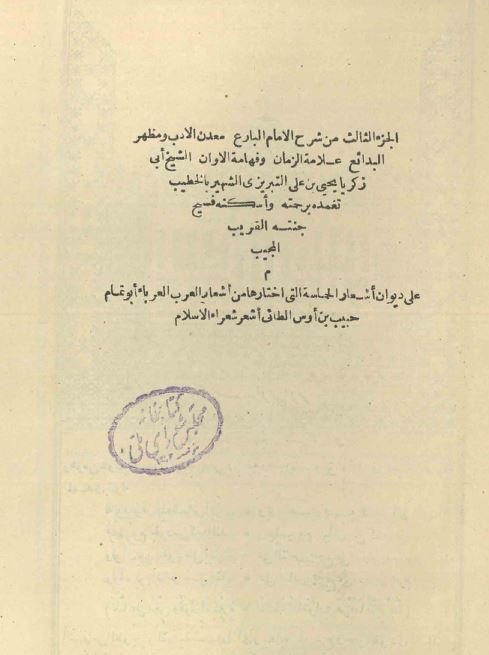 الجزء الثالث من شرح الامام البارع معدن الادب ومظهر
البدائع علامة الزمان وفهامة الاوان الشيخ أبى
زكريا يحيى بن على التبريزى الشهير بالخطيب
تغمده برحمته وأسكنه فسيح
جنته القريب
المجيب
م
على ديوان أشعار الحماسة التى اختارها من أشعار العرب العرباء أبو تمام
حبيب بن أوس الطائى أشعر شعراء الاسلام
كتابخانه
مجلس شوراى ملى